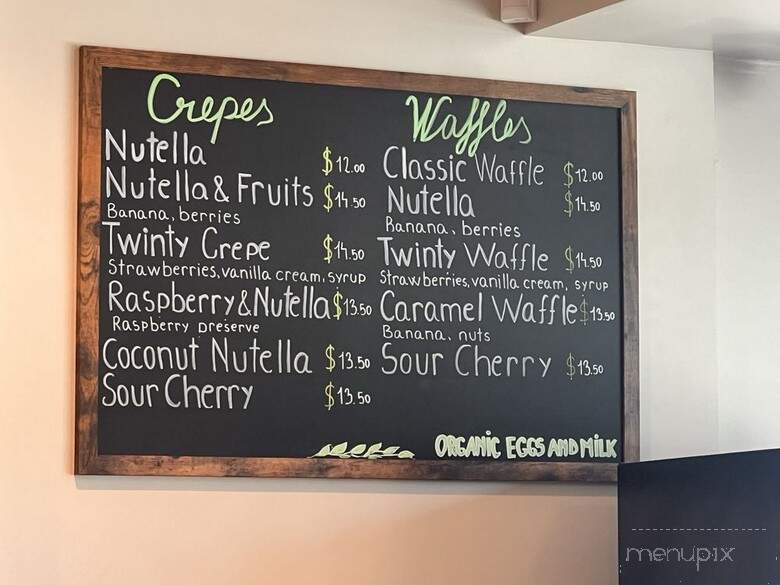 Crepes
Nutella $12.00
Nutella & Fruits $14.50
Banana, berries
Twinty Crepe $14.50
Strawberries, vanilla cream, syrup
Raspberry & Nutella $13.50
Raspberry preserve
Coconut Nutella $13.50
Sour Cherry $13.50
Waffles
Classic Waffle $12.00
Nutella $14.50
Banana, berries
Twinty Waffle $14.50
Strawberries, vanilla cream, syrup
Caramel Waffle $13.50
Banana, nuts
Sour Cherry $13.50
ORGANIC EGGS AND MILK
menupix